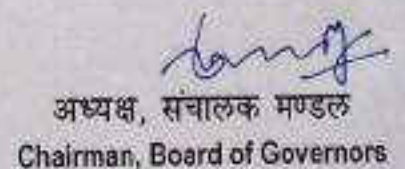 अध्यक्ष, संचालक मण्डल
Chairman, Board of Governors